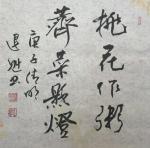 桃花作粥
薺菜點燈
庚子清明